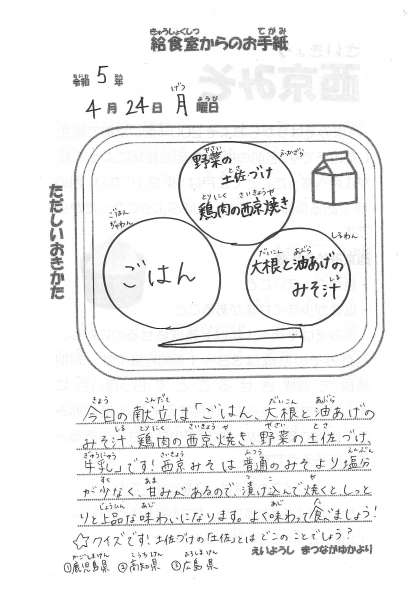 きゅうしょくしつ てがみ
給食室からのお手紙
れいわ ねん
令和 5年
がつ にち げつ ようび
4月24日 月曜日
ただしいおきかた
やさい
野菜の
とさ
土佐づけ
とりにく さいきょうや
鶏肉の西京焼き
ふかざら
ごはん
ぢゃわん
ごはん
しるわん
だいこん あぶら
大根と油あげの
しる
みそ汁
きょう こんだて だいこん あぶら
今日の献立は「ごはん、大根と油あげの
しる とりにく さいきょうや やさい とさ
みそ汁、鶏肉の西京焼き、野菜の土佐づけ、
ぎゅうにゅう さいきょう ふつう えんぶん
牛乳」です！西京みそは普通のみそより塩分
すく あま つ こ や
が少なく、甘みがあるので、漬け込んで焼くとしっと
じょうひん あじ あじ た
りと上品な味わいになります。よく味わって食べましょう！
とさ とさ
☆クイズです！土佐づけの「土佐」とはどこのことでしょう？
えいようし まつながゆかより
かごしまけん こうちけん ひろしまけん
①鹿児島県 ②高知県 ③広島県